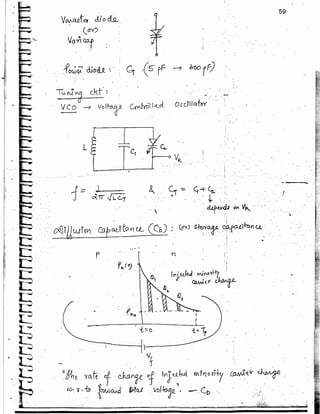 59
Varactor diode
(or)
Varicap
Power diode : C_T (5 pF → 400 pF)
Tuning ckt :
VCO → Voltage Controlled Oscillator
L C₁ C₂
V_R
f = 1 / 2π √LC_T & C_T = C₁ + C₂
↓
depends on V_R
Diffusion Capacitance (C_D) : (or) Storage capacitance
p n
P_n(0)
Injected minority
carrier charge
Q₁
Q₂
Q₃
P_no
t=0
V_f
"The rate of change of Injected minority carrier charge
w.r.to forward bias voltage". — C_D